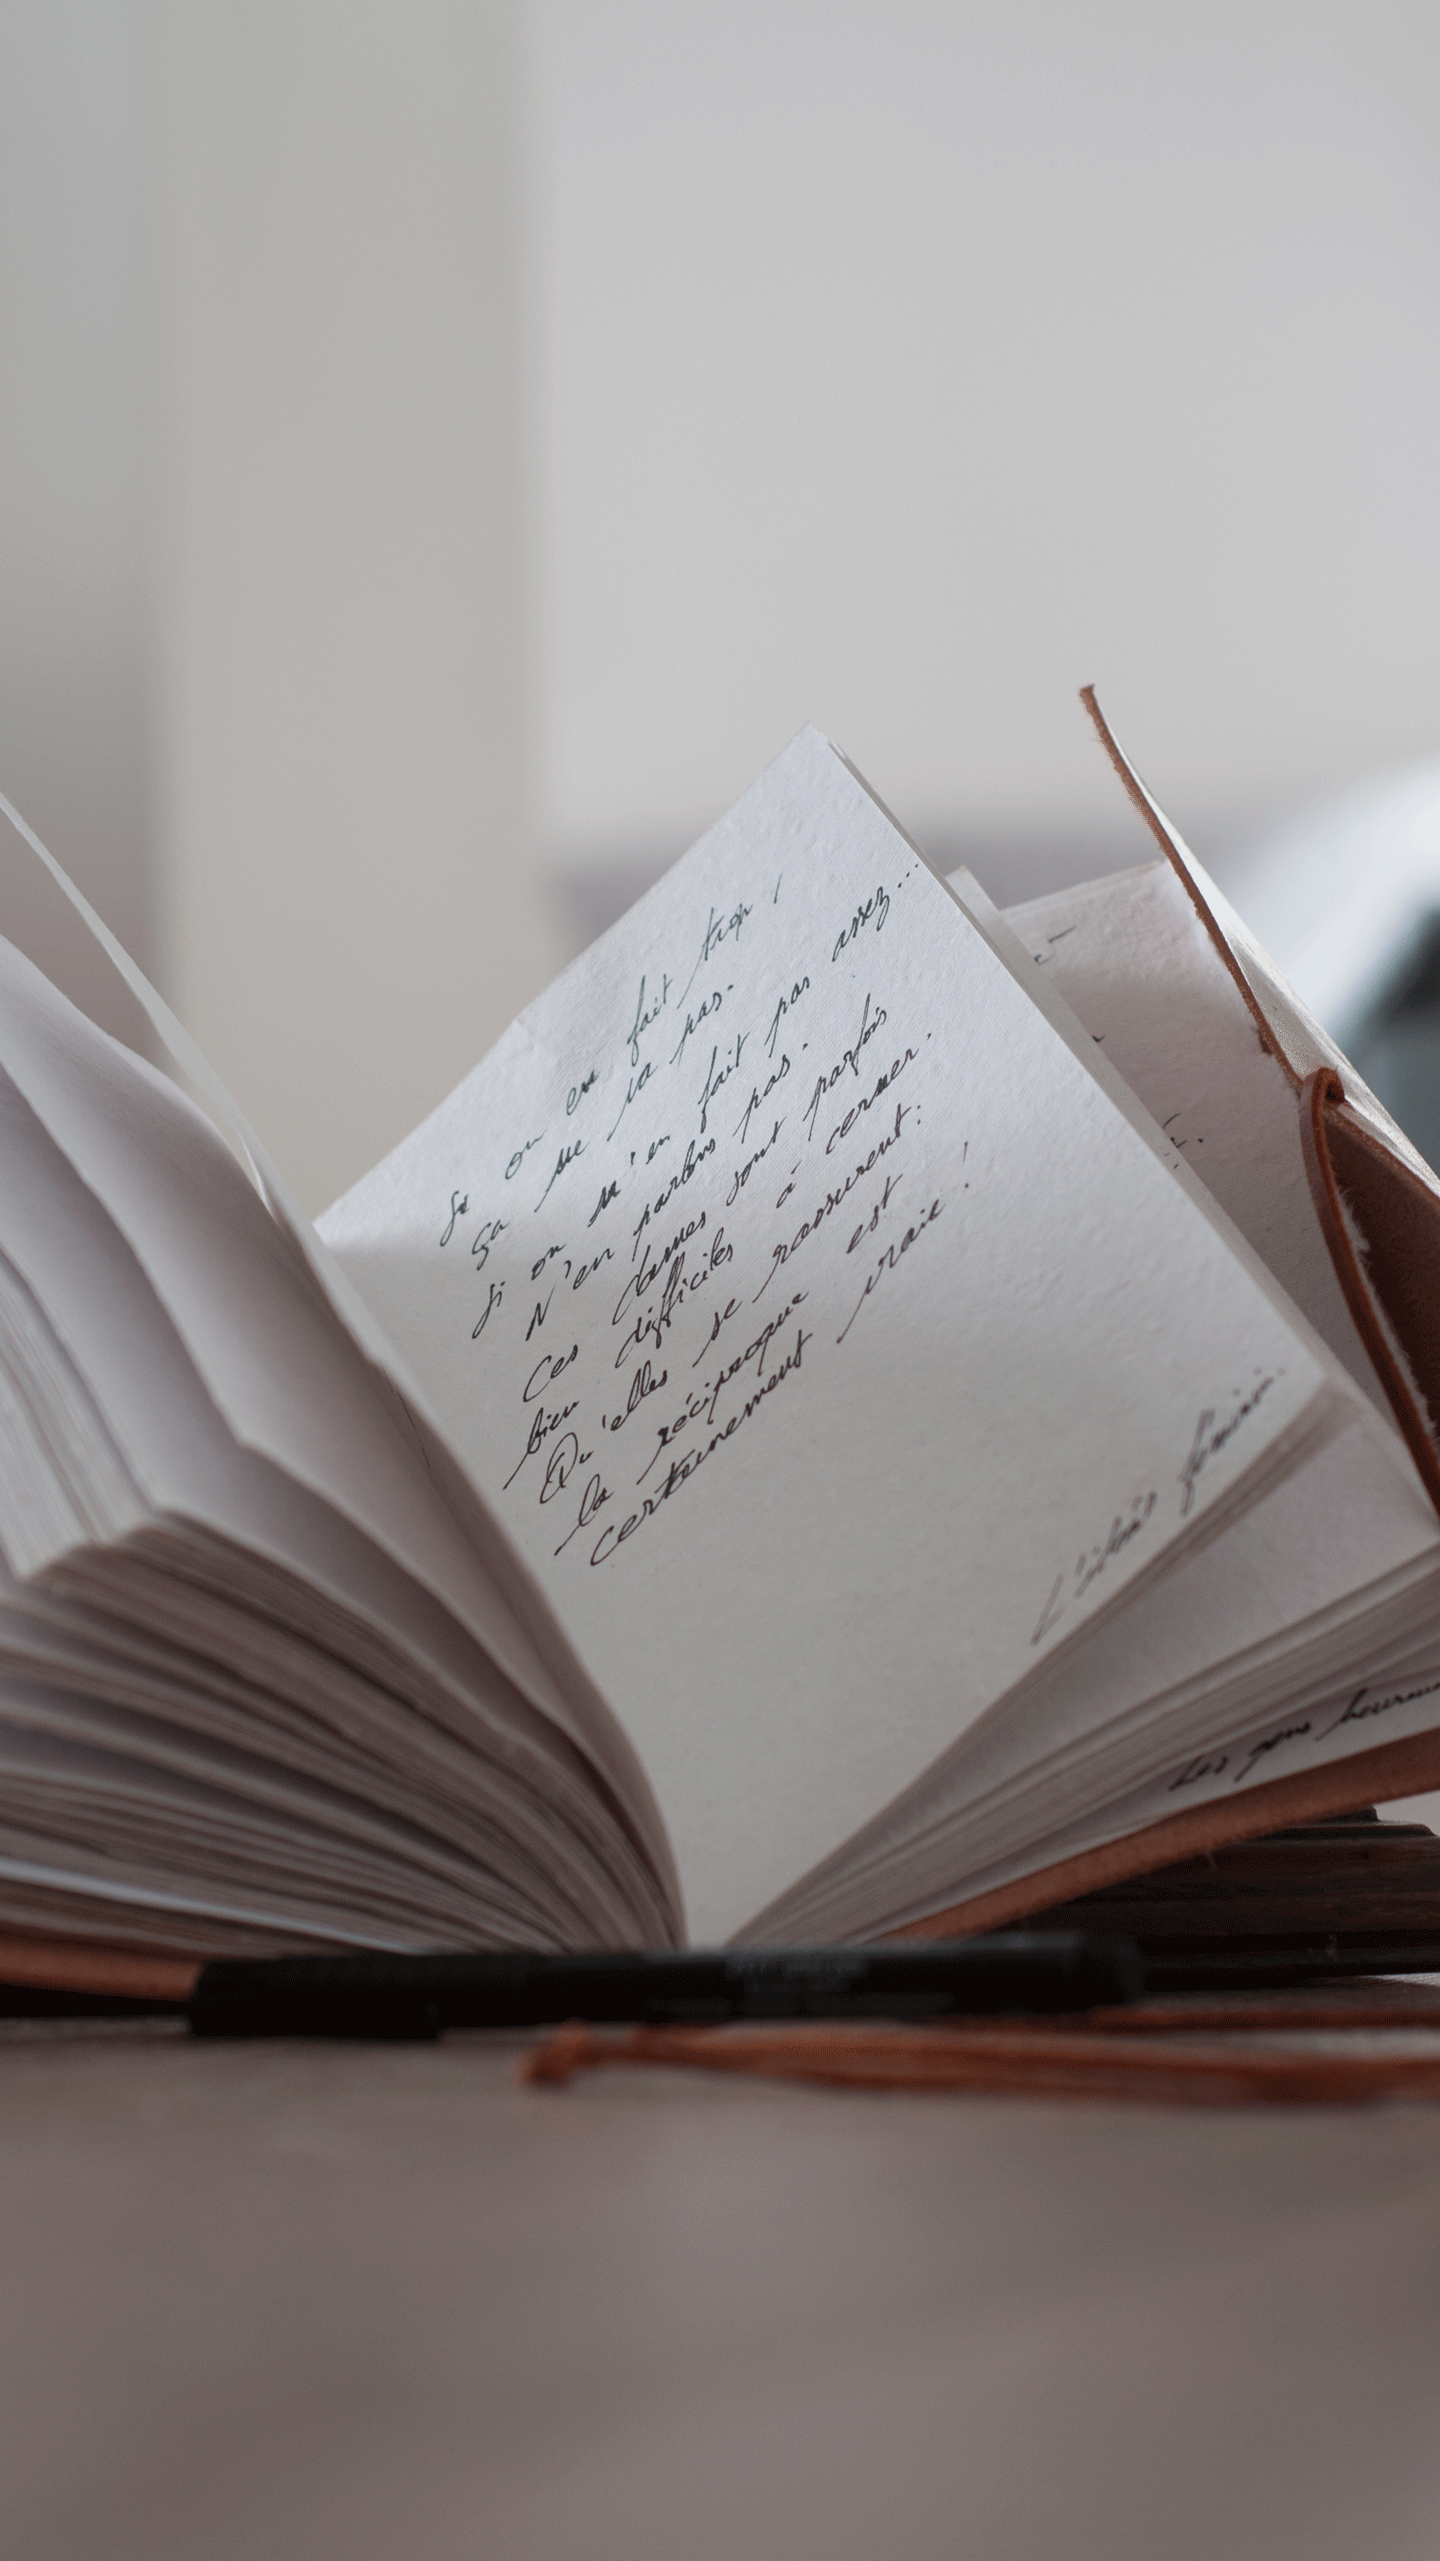 Si on en fait trop !
Ça ne va pas.
Si on n'en fait pas assez...
N'en parlons pas.
Ces dames sont parfois
bien difficiles à cerner.
Qu'elles se rassurent :
la réciproque est
certainement vraie !
L'idéal féminin.
Les gens heureux